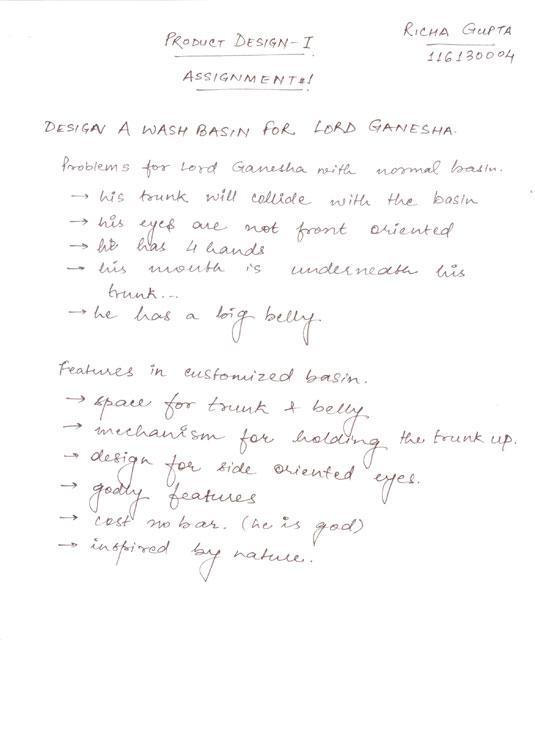 RICHA GUPTA
116130004
PRODUCT DESIGN-I
ASSIGNMENT#1
DESIGN A WASH BASIN FOR LORD GANESHA.
Problems for Lord Ganesha with normal basin.
→ his trunk will collide with the basin
→ his eyes are not front oriented
→ he has 4 hands
→ his mouth is underneath his
trunk...
→ he has a big belly.
Features in customized basin.
→ space for trunk & belly
→ mechanism for holding the trunk up.
→ design for side oriented eyes.
→ godly features
→ cost no bar. (he is god)
→ inspired by nature.